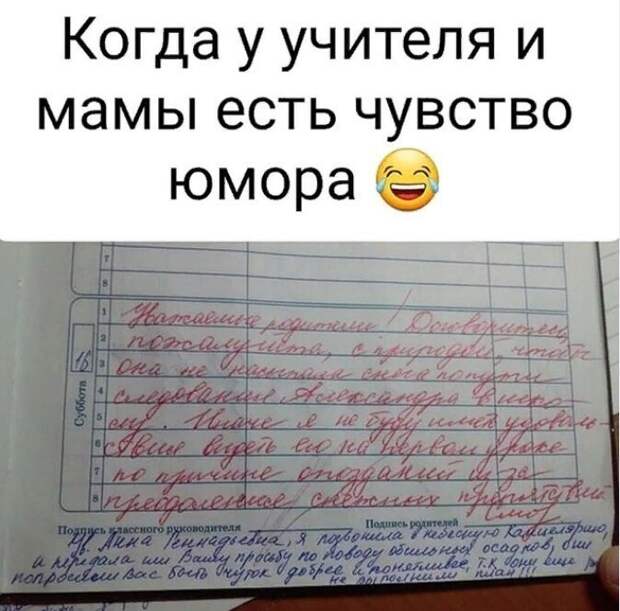 Когда у учителя и
мамы есть чувство
юмора 😂
7
8
Суббота 16
1 Уважаемые родители! Договоритесь,
2 пожалуйста, с природой, чтобы
3 она не насыпала снега по пути
4 следования Александра в шко-
5 лу. Иначе я не буду иметь удоволь-
6 ствие видеть его на первом уроке
7 по причине опозданий из за
8 преодоления снежных препятствий
Подпись классного руководителя Подпись родителей
Ув. Анна Геннадьевна, я позвонила в небесную Канцелярию,
и передала им Вашу просьбу по поводу обильных осадков, они
попросили Вас быть чуток добрее и понятливее, т.к они еще
не выполнили план!!!